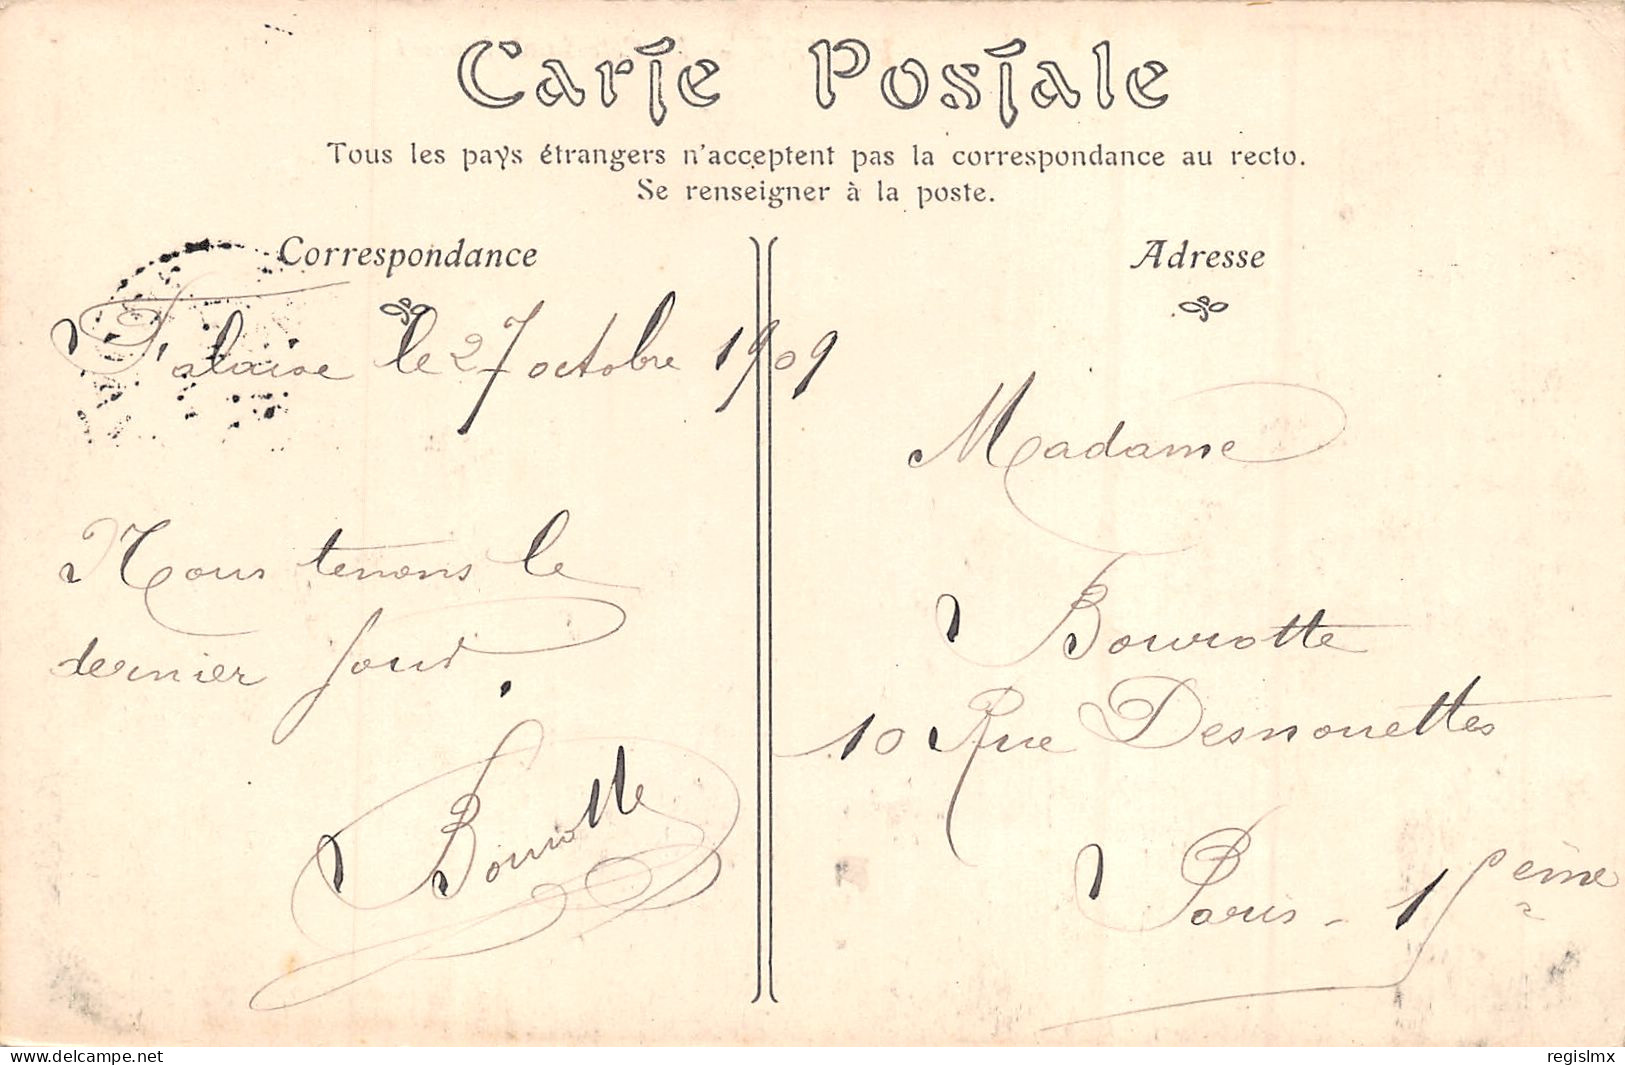 Carte Postale
Tous les pays étrangers n'acceptent pas la correspondance au recto.
Se renseigner à la poste.
Correspondance
Falaise le 27 octobre 1909
Nous tenons le
dernier jour.
Bourotte
Adresse
Madame
Bourotte
10 Rue Desnouettes
Paris - 15ème
delcampe.net
regislmx